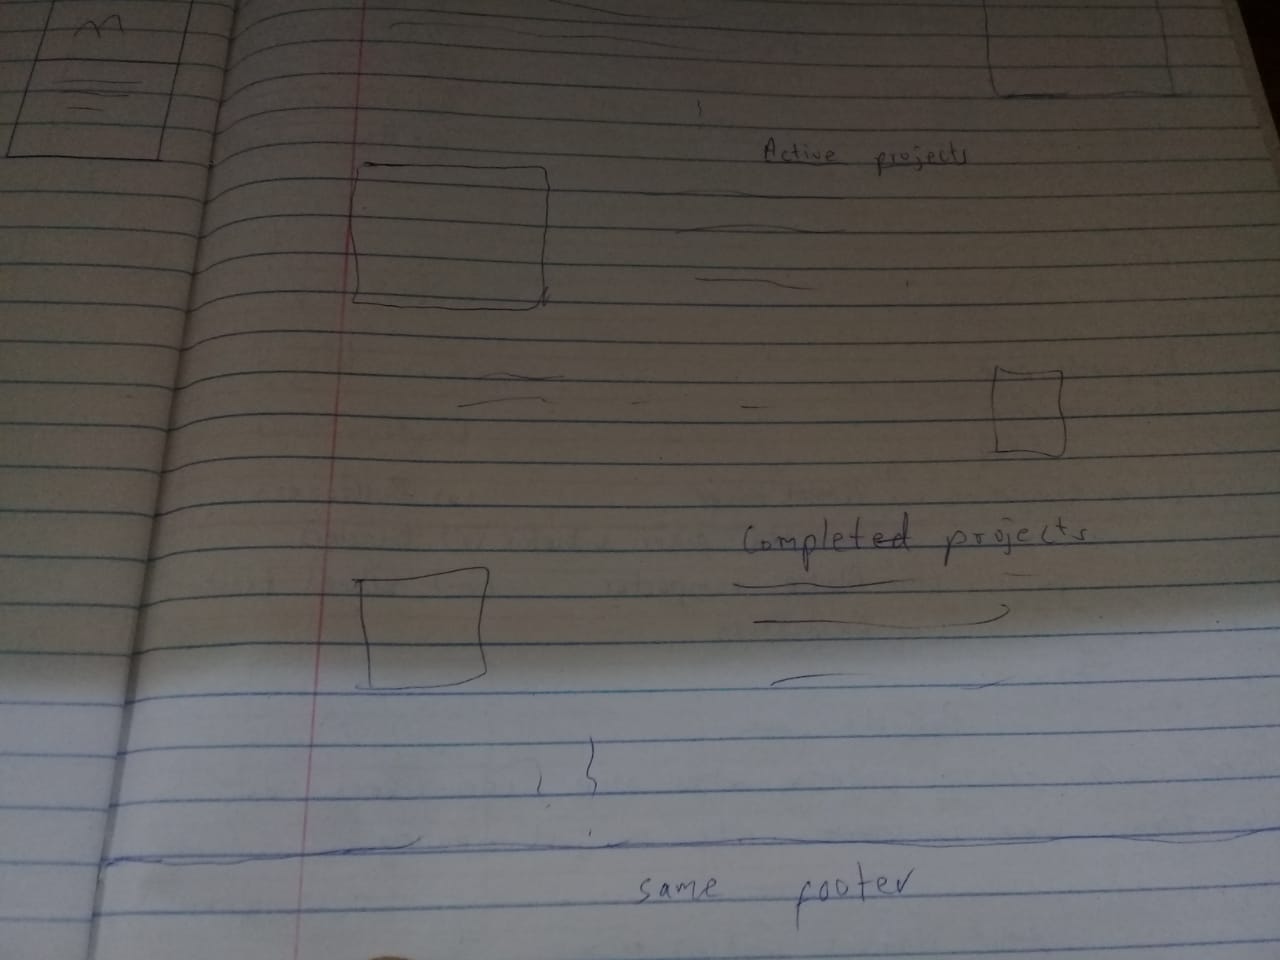 Active projects
Completed projects
same footer